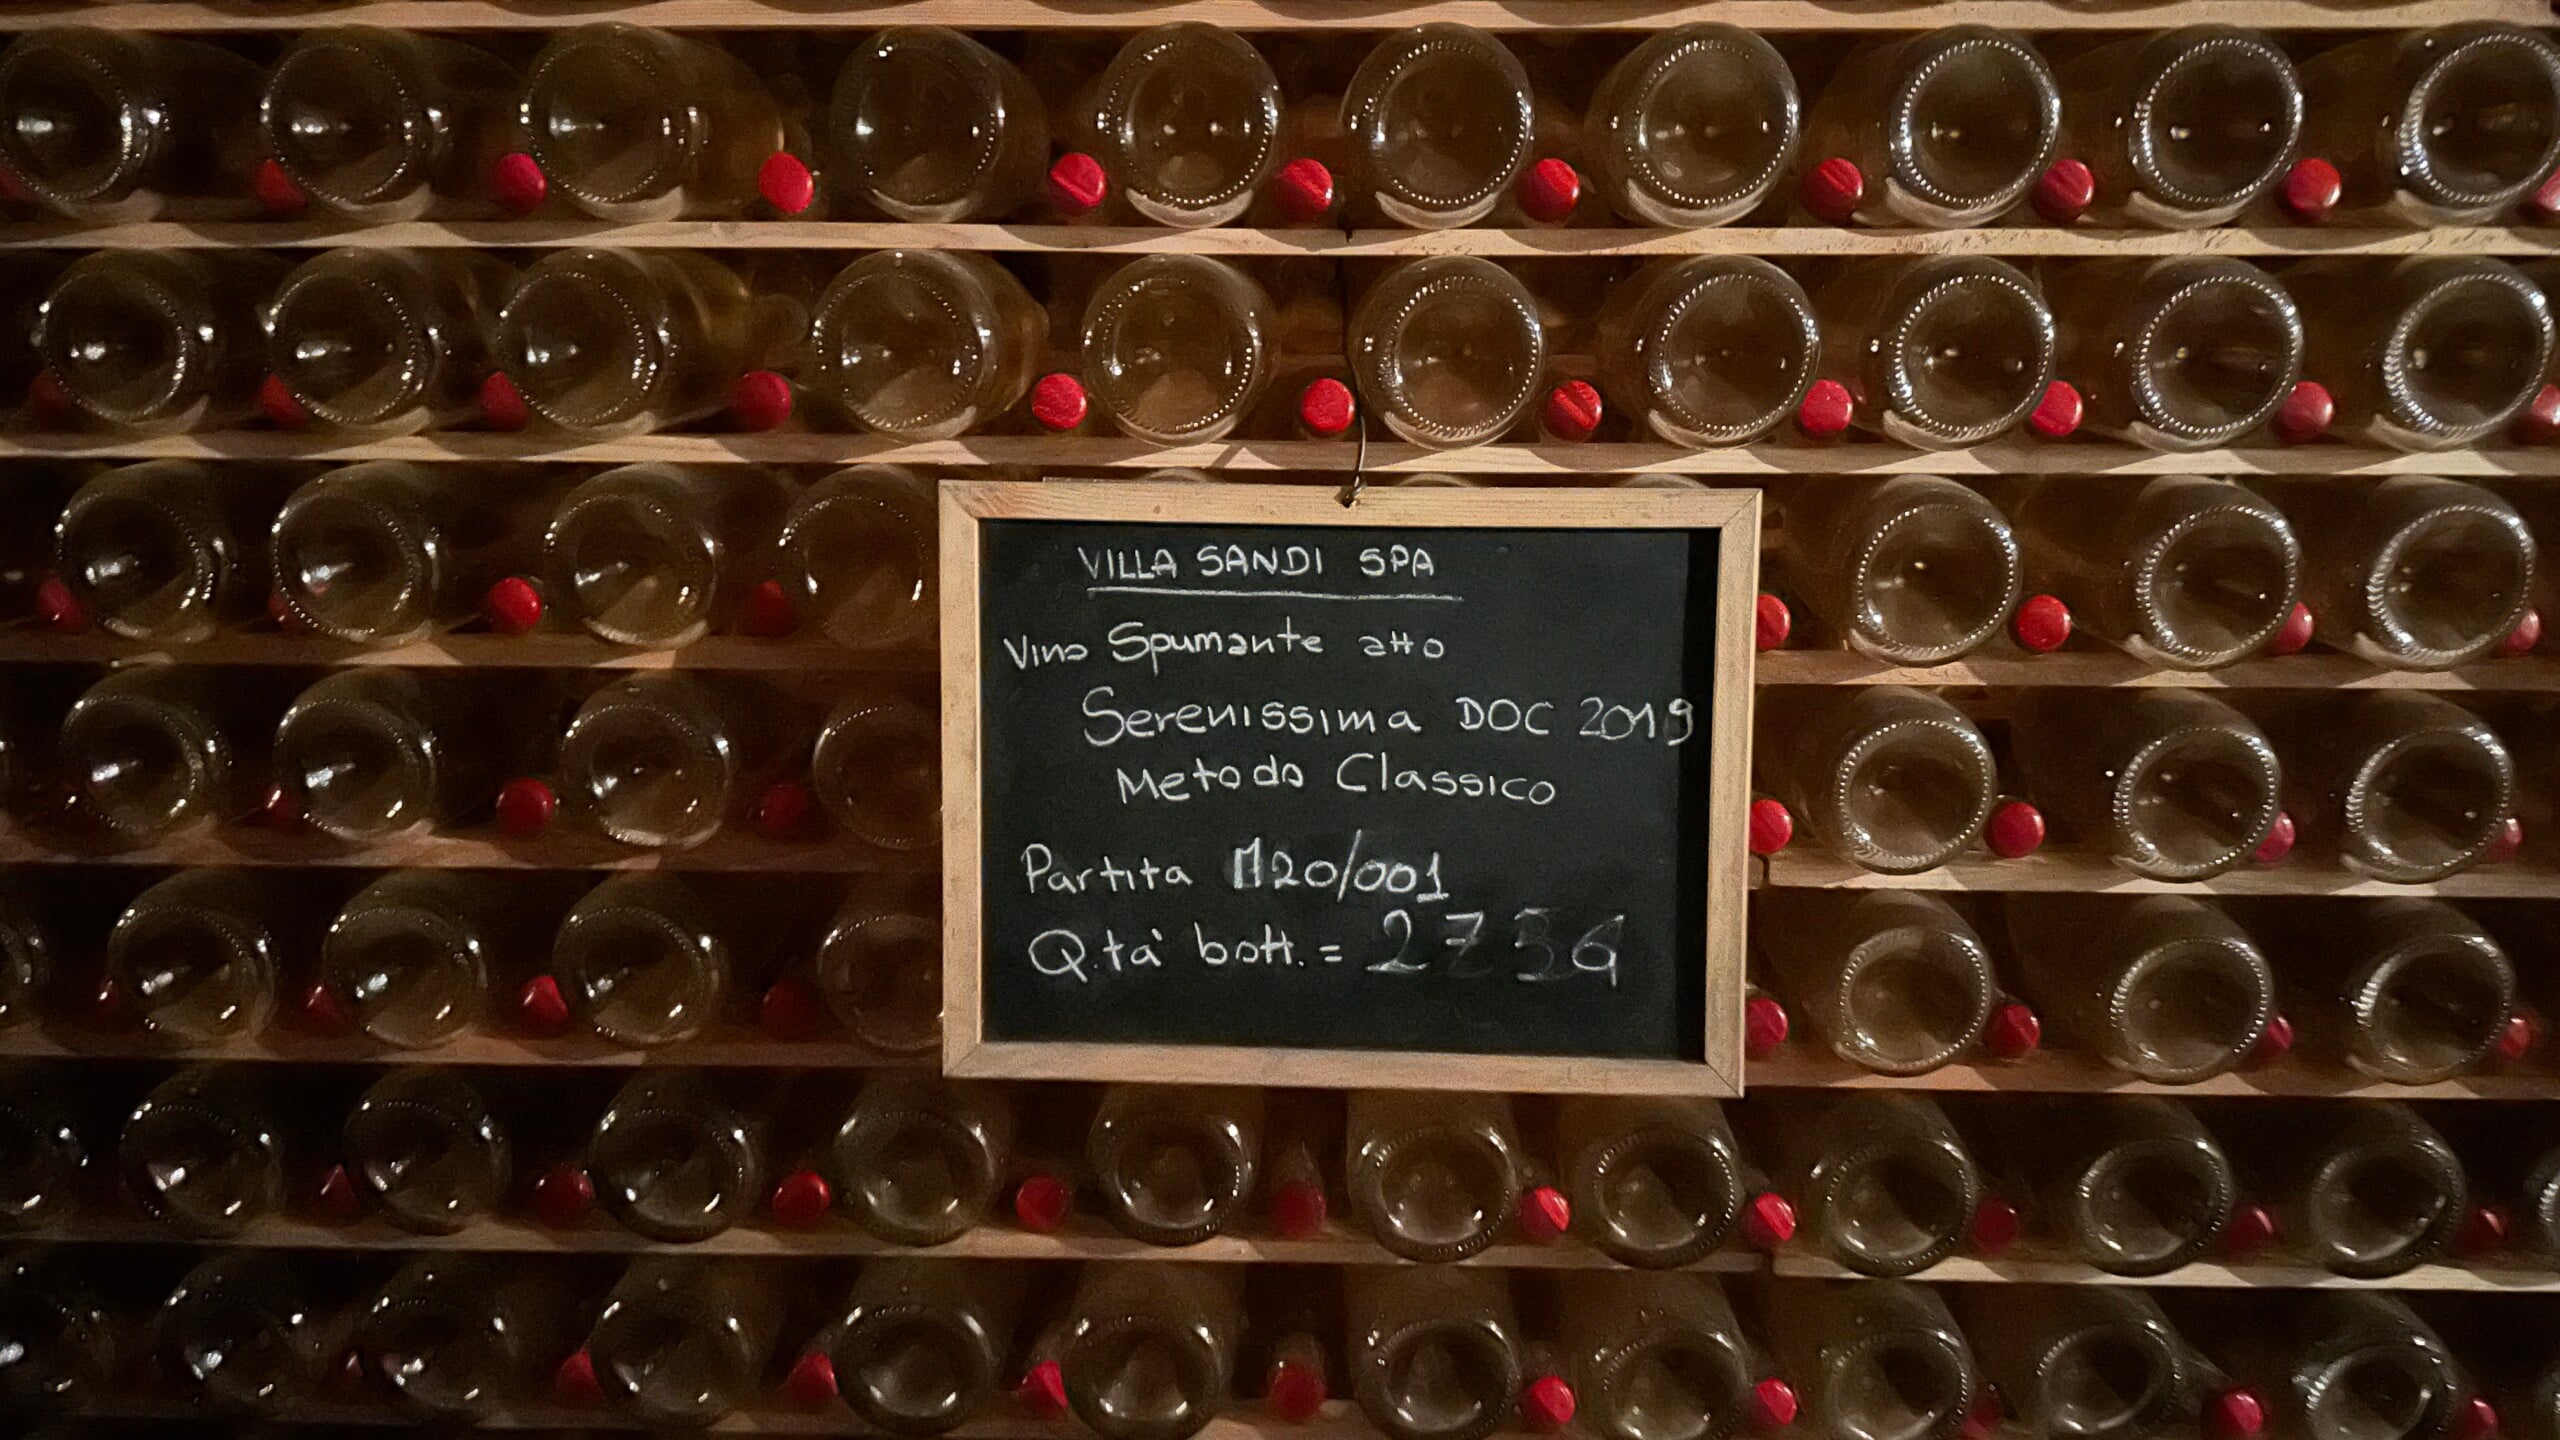 VILLA SANDI SPA
Vino Spumante atto
Serenissima DOC 2019
Metodo Classico
Partita M20/001
Q.tà bott. = 2756